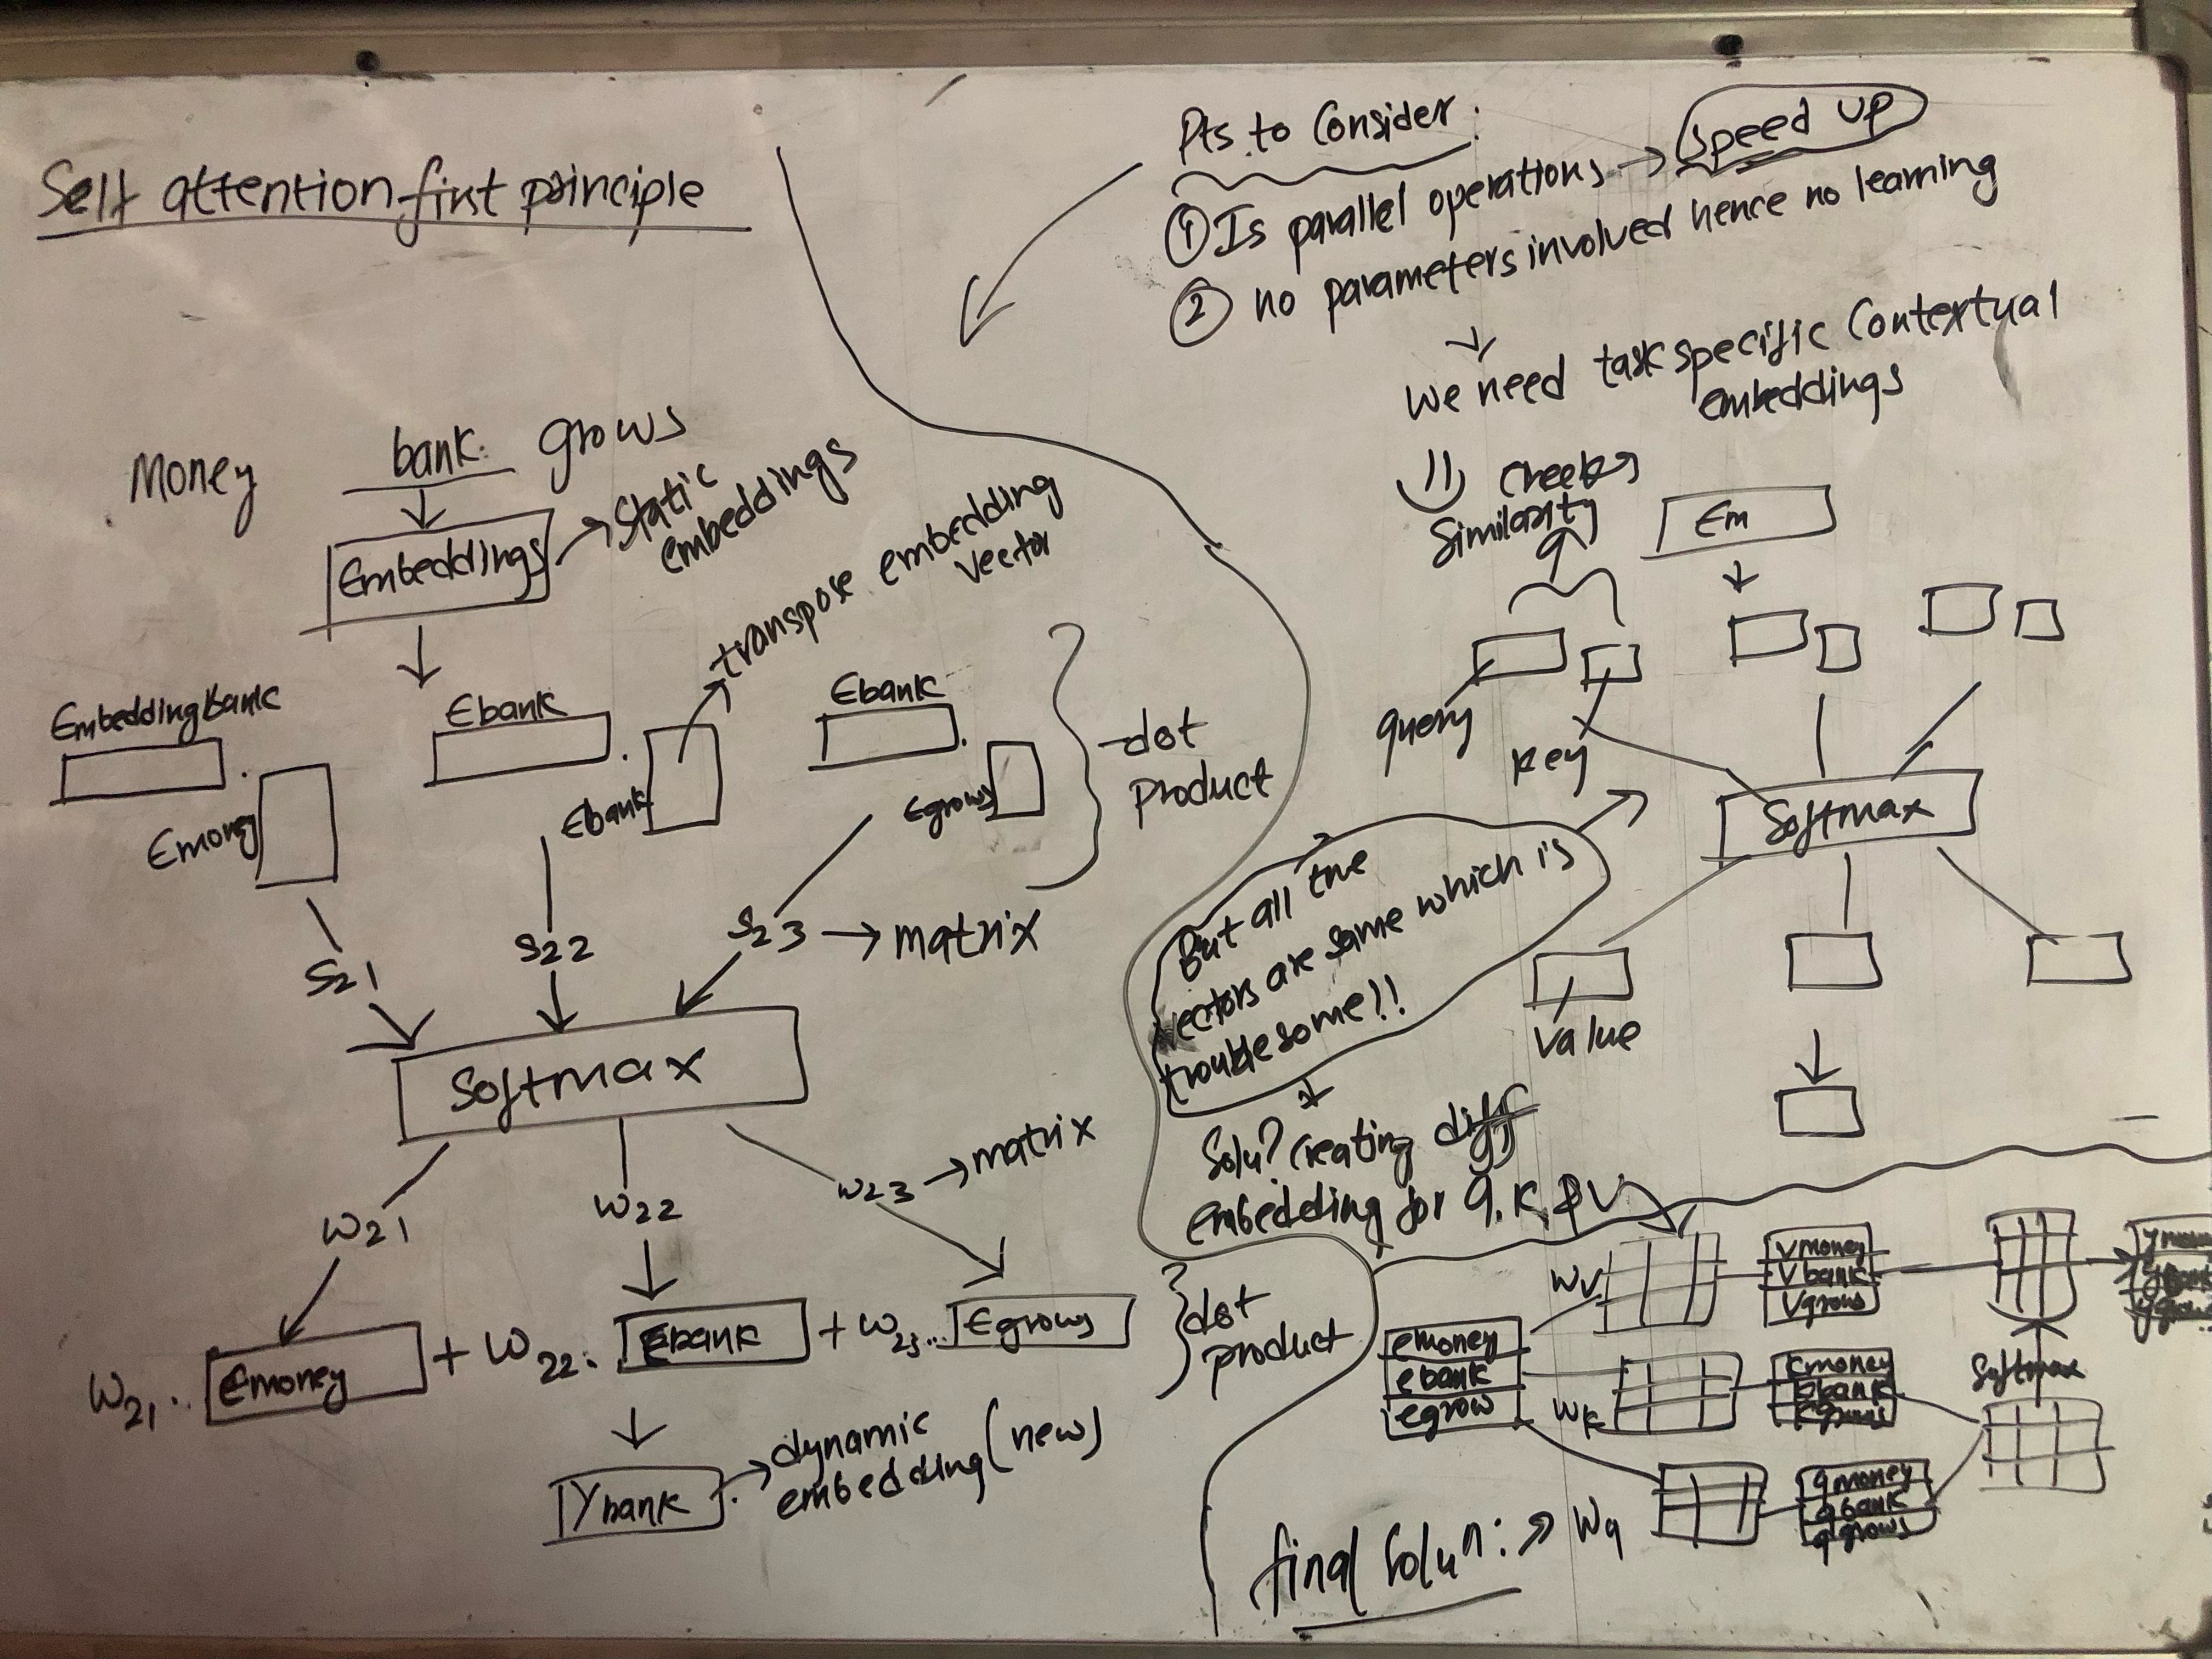 Self attention first principle
Money bank grows
Embeddings
Static
embeddings
transpose embedding
vector
Embedding bank
Emoney
Ebank
Ebank
Ebank
Egrows
dot
product
S21
S22
S23 → matrix
Softmax
W21
W22
W23 → matrix
W21. Emoney + W22. Ebank + W23. Egrows
dot
product
Ybank
dynamic
embedding (new)
Pts. to Consider:
① Is parallel operations → Speed up
② no parameters involved hence no learning
We need task specific Contextual
embeddings
Checks
Similarity
Em
query
key
Softmax
Value
But all the
vectors are same which is
troublesome!!
Creating diff
embedding for q, k, & V
Wv
Vmoney
Vbank
Vgrows
emoney
ebank
egrow
Wk
kmoney
kbank
kgrows
Wq
qmoney
qbank
qgrows
Softmax
final Solun: